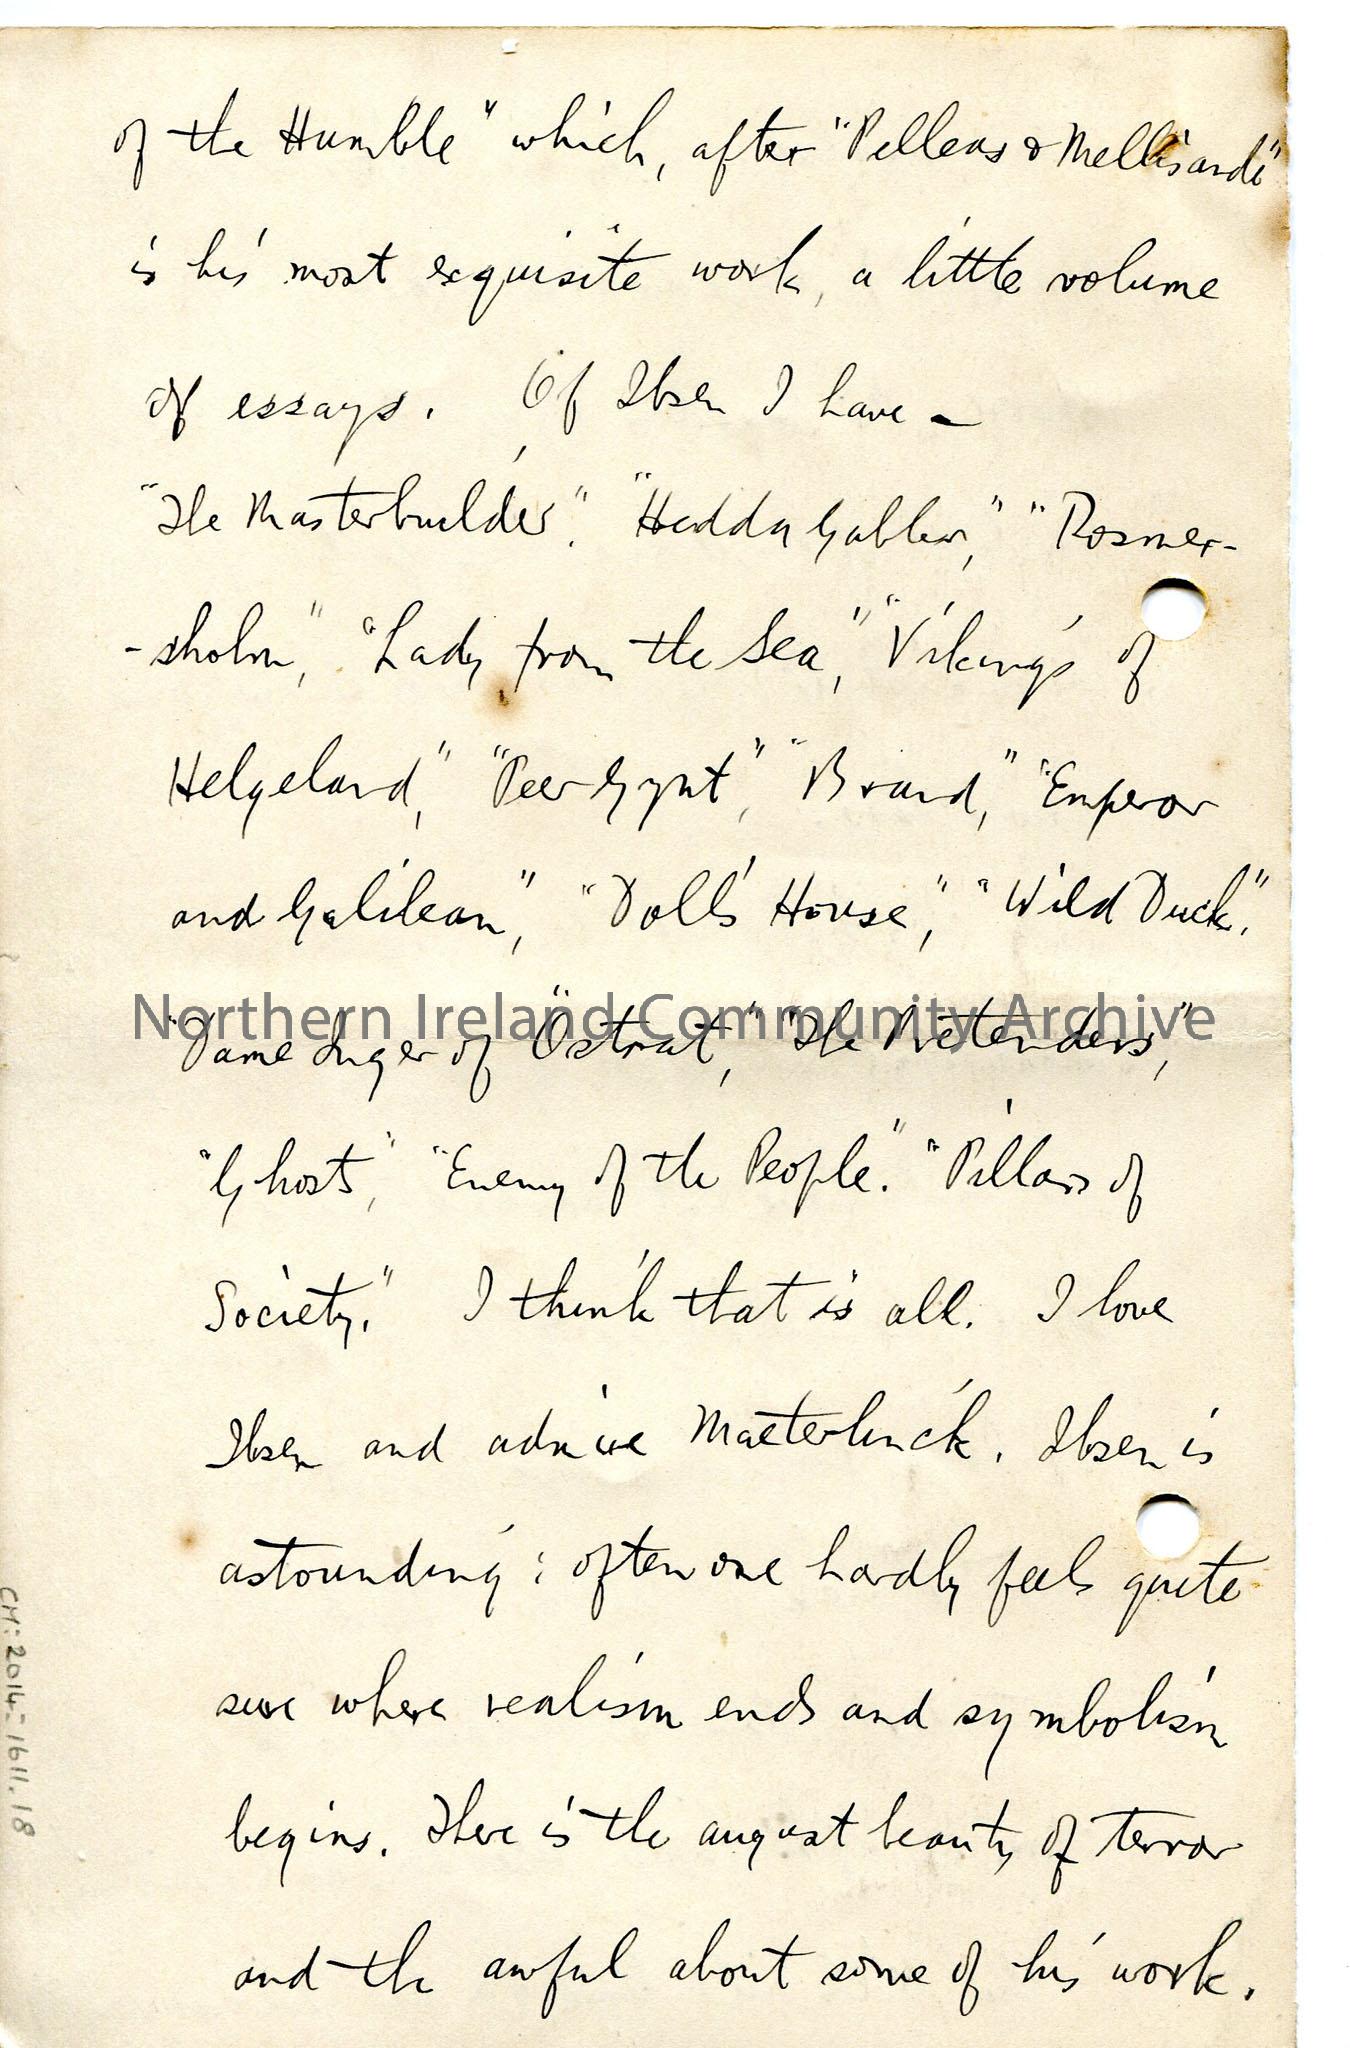 of the Humble" which, after "Pelleas & Mellisande"
is his most exquisite work, a little volume
of essays. Of Ibsen I have -
"The Masterbuilder", "Hedda Gabler," "Rosmer-
-sholm," "Lady from the Sea," "Vikings of
Helgeland," "Peer Gynt", "Brand," "Emperor
and Galilean," "Doll's House," "Wild Duck,"
Northern Ireland Community Archive
"Dame Inger of Östrat," "The Pretenders,"
"Ghosts," "Enemy of the People." "Pillars of
Society." I think that is all. I love
Ibsen and admire Maeterlinck. Ibsen is
astounding; often one hardly feels quite
sure where realism ends and symbolism
begins. There is the august beauty of terror
and the awful about some of his work.
CM:2014-1611.18